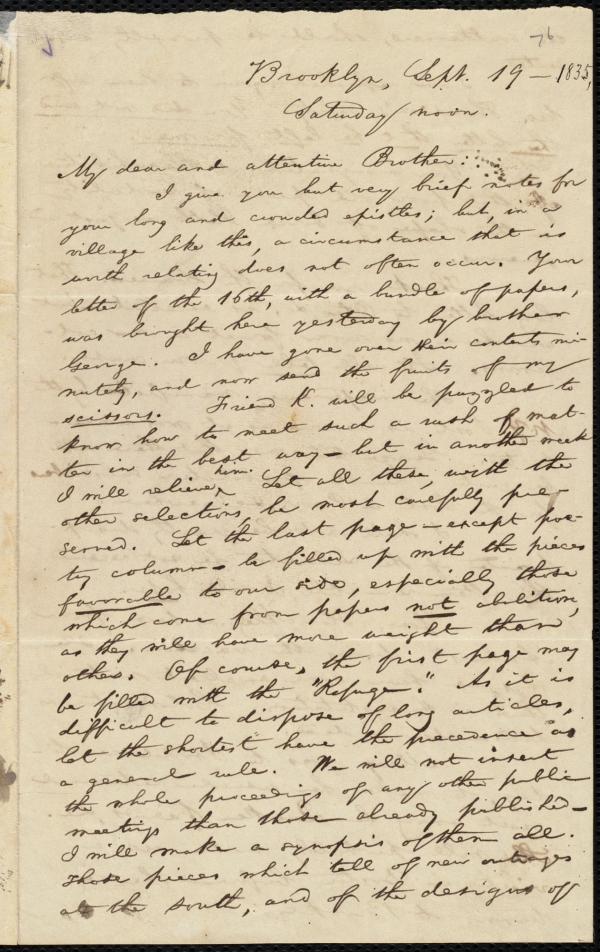 76
Brooklyn, Sept. 19 — 1835,
Saturday noon.
My dear and attentive Brother:
I give you but very brief notes for
your long and crowded epistles; but, in a
village like this, a circumstance that is
worth relating does not often occur. Your
letter of the 16th, with a bundle of papers,
was brought here yesterday by brother
George. I have gone over their contents mi-
nutely, and now send the fruits of my
scissors. Friend K. will be puzzled to
know how to meet such a rush of mat-
ter in the best way — but in another week
I will relieve him. Let all these, with the
other selections, be most carefully pre-
served. Let the last page — except poe-
try column — be filled up with the pieces
favorable to our side, especially those
which come from papers not abolition,
as they will have more weight than
others. Of course, the first page may
be filled with the "Refuge." As it is
difficult to dispose of long articles,
let the shortest have the precedence as
a general rule. We will not insert
the whole proceedings of any other public
meetings than those already published —
I will make a synopsis of them all.
Those pieces which tell of new outrages
at the south, and of the designs of